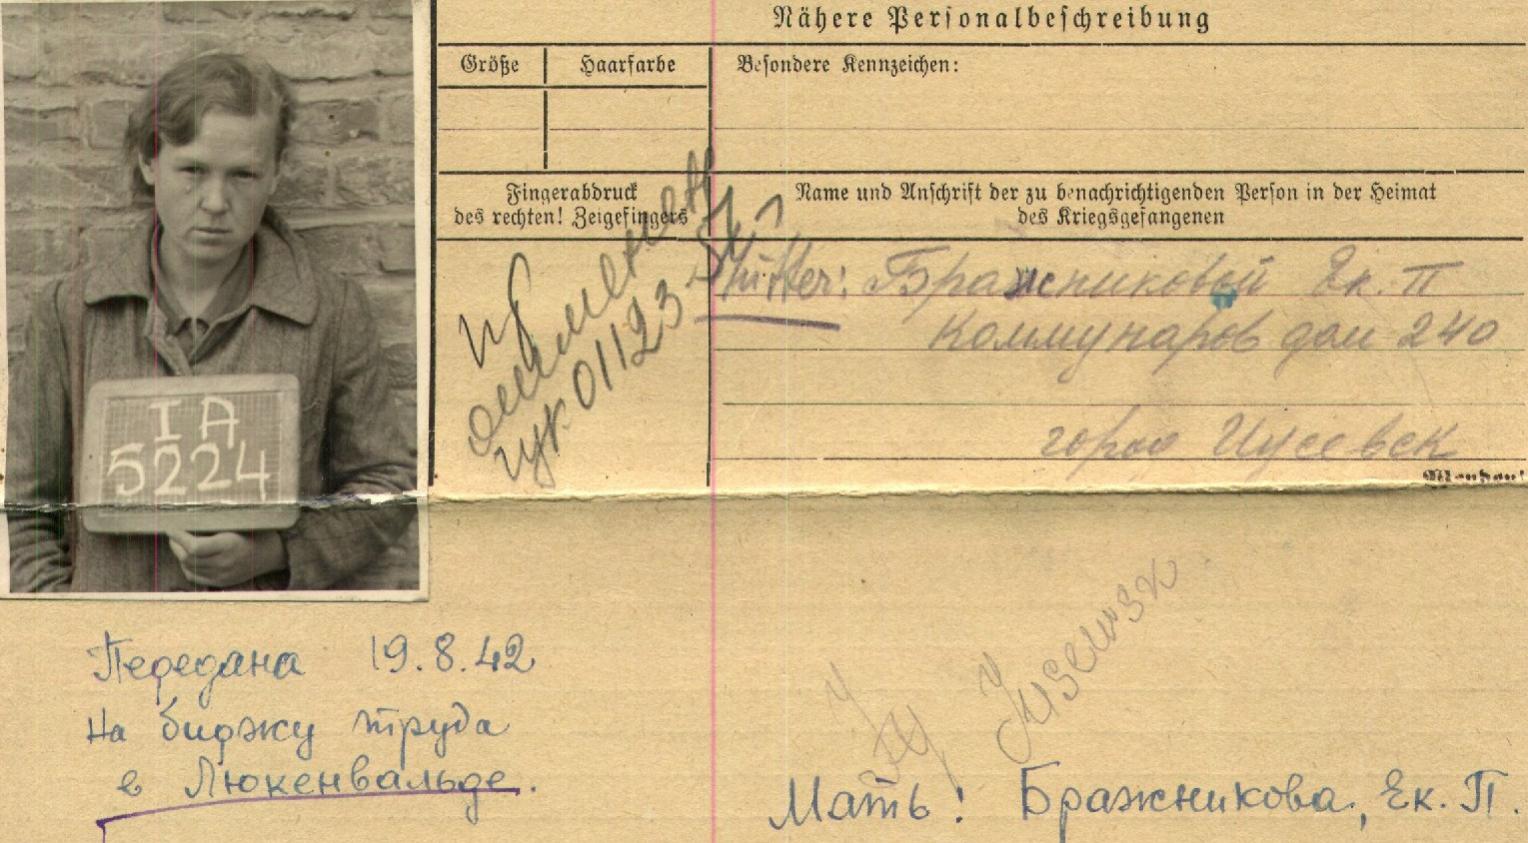 Nähere Personalbeschreibung
Größe
Haarfarbe
Besondere Kennzeichen:
Fingerabdruck
des rechten! Zeigefingers
Name und Anschrift der zu benachrichtigenden Person in der Heimat
des Kriegsgefangenen
Mutter: Бражниковой Ек. П
Коммунаров дом 240
город
01123
I A
5224
Передана 19.8.42
на биржу труда
в Люкенвальде.
Мать: Бражникова, Ек. П.